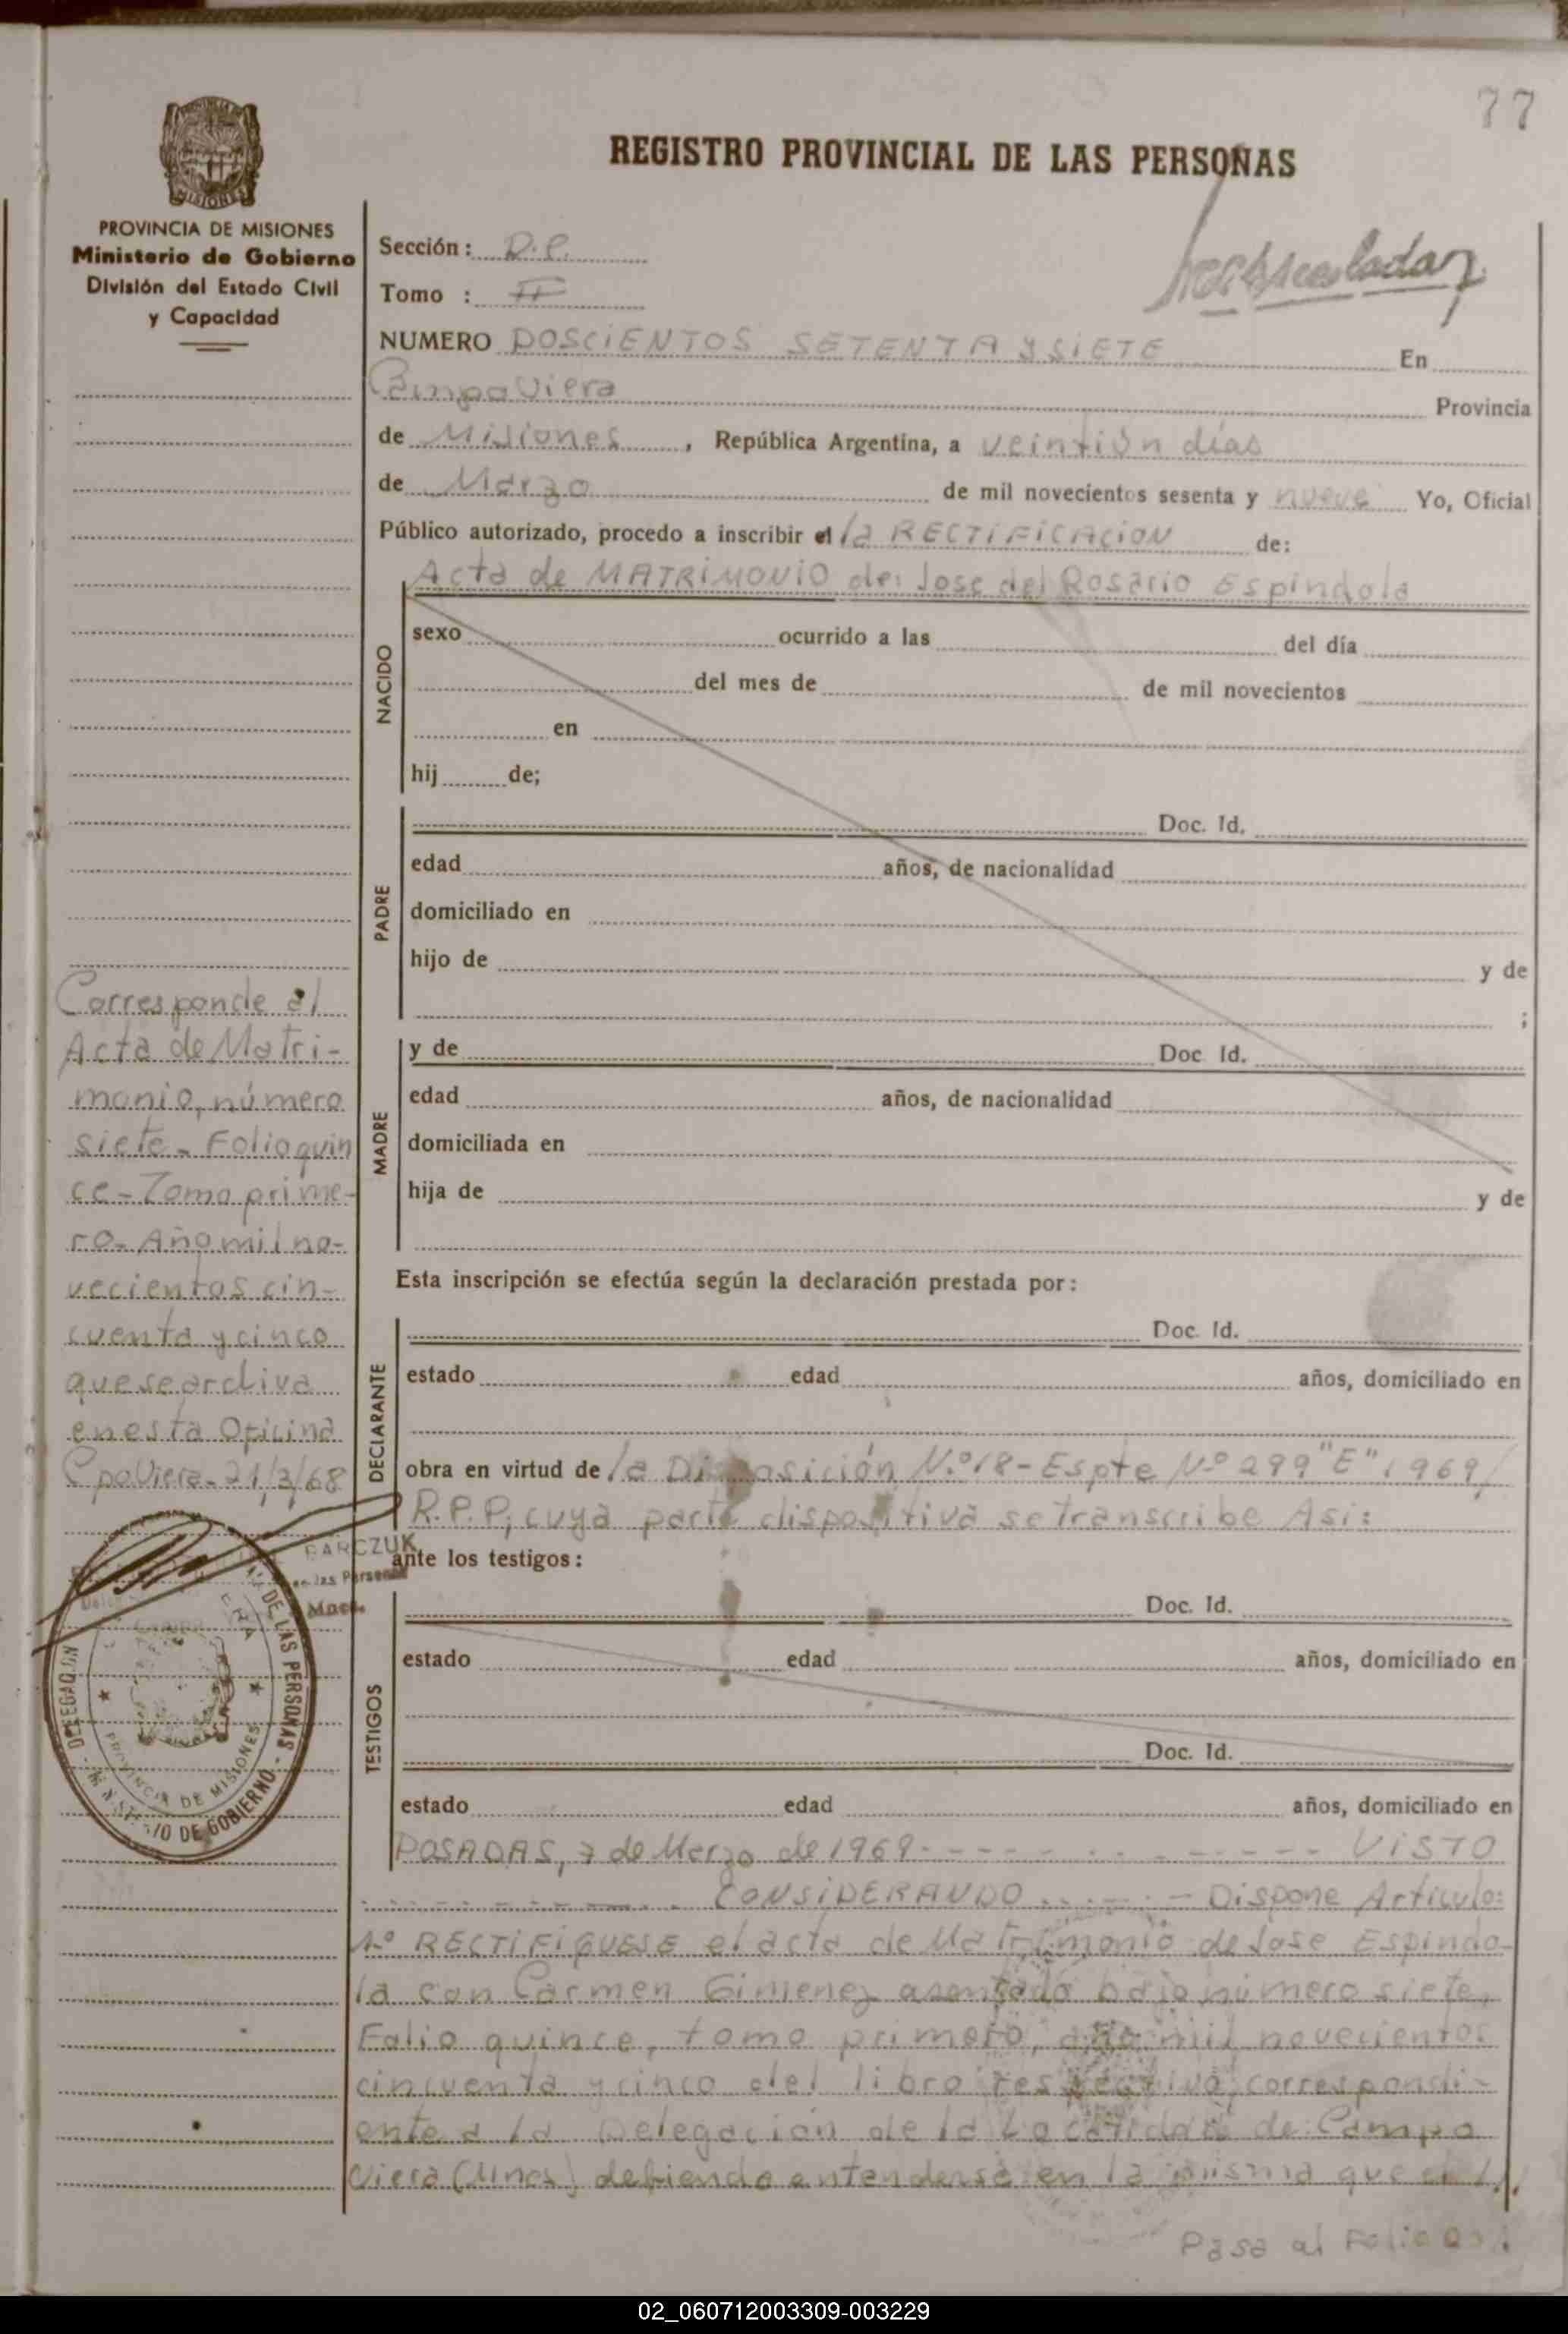 77
REGISTRO PROVINCIAL DE LAS PERSONAS
MISIONES
PROVINCIA DE MISIONES
Ministerio de Gobierno
División del Estado Civil
y Capacidad
Sección: D.P.
Tomo : II
NUMERO DOSCIENTOS SETENTA Y SIETE En
Campo Viera Provincia
de Misiones, República Argentina, a veintiún días
de Marzo de mil novecientos sesenta y nueve Yo, Oficial
Público autorizado, procedo a inscribir el la RECTIFICACION de:
Acta de MATRIMONIO de: Jose del Rosario Espindola
NACIDO
sexo ocurrido a las del día
del mes de de mil novecientos
en
hij de;
PADRE
Doc. Id.
edad años, de nacionalidad
domiciliado en
hijo de y de
;
MADRE
y de Doc Id.
edad años, de nacionalidad
domiciliada en
hija de y de
Esta inscripción se efectúa según la declaración prestada por:
DECLARANTE
Doc. Id.
estado edad años, domiciliado en
obra en virtud de la Disposición N.º 18 - Espte Nº 299 "E" 1969/
R.P.P, cuya parte dispositiva se transcribe Asi:
ante los testigos:
TESTIGOS
Doc. Id.
estado edad años, domiciliado en
Doc. Id.
estado edad años, domiciliado en
POSADAS, 7 de Marzo de 1969 - - - VISTO
CONSIDERANDO - Dispone Articulo:
1º RECTIFIQUESE el acta de Matrimonio de Jose Espindo-
la con Carmen Gimenez asentado bajo número siete,
Folio quince, tomo primero, año mil novecientos
cincuenta y cinco del libro respectivo, correspondi-
ente a la Delegación de la Localidad de Campo
Viera (Mnes) debiendo entenderse en la misma que el ///
Pasa al Folio
Corresponde al
Acta de Matri-
monio, número
siete - Folio quin
ce - Tomo prime-
ro - Año mil no-
vecientos cin-
cuenta y cinco
que se archiva
en esta Oficina
CpoViera - 21/3/68
PARCZUK
de las Personas
Mnes.
DELEGACION
DE LAS PERSONAS
PROVINCIA DE MISIONES
MINISTERIO DE GOBIERNO
02_060712003309-003229